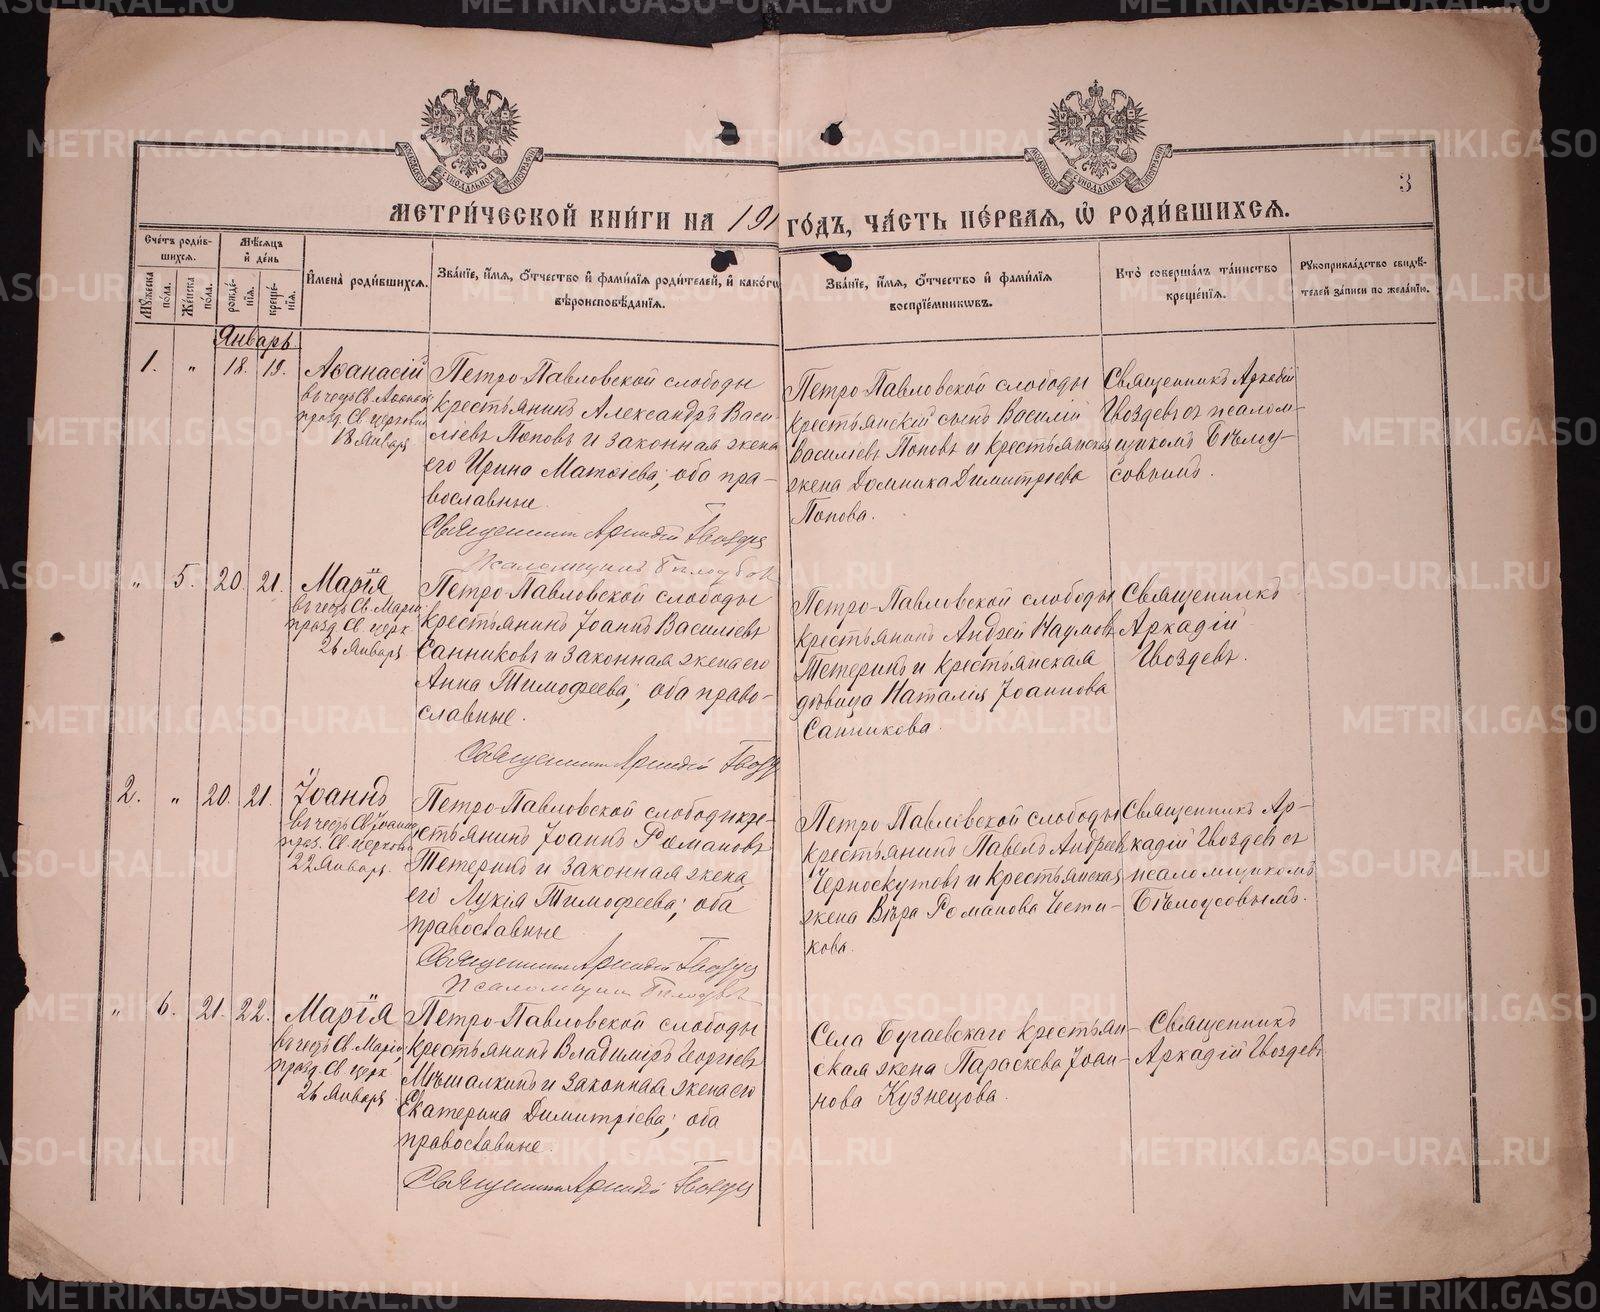 МЕТРИ́ЧЕСКОЙ КНИ́ГИ НА 191 ГО́ДЪ, ЧА́СТЬ ПЕ́РВАЯ, Ѽ РОДИ́ВШИХСЯ.
3
Сче́тъ роди́в-
шихся.
Мѣ́сяцъ
и҆ де́нь
Мꙋ́жеска
по́ла.
Же́нска
по́ла.
рожде́-
нїѧ.
креще́-
нїѧ.
И҆мена̀ роди́вшихся.
Зва́нїе, и҆́мѧ, ѻ҆́тчество и҆ фами́лїѧ роди́телей, и҆ како́гѡ
вѣроисповѣ́данїѧ.
Зва́нїе, и҆́мѧ, ѻ҆́тчество и҆ фами́лїѧ
воспрїе́мникѡвъ.
Кто̀ соверша́лъ та́инство
креще́нїѧ.
Рꙋкоприкла́дство свидѣ́-
телей за́писи по жела́нїю.
Январь
1.
"
18.
19.
Аѳанасій
въ честь Св. Аѳанас
празд. Св. церковію
18 Января
Петро-Павловской слободы
крестьянинъ Александръ Васи-
льевъ Поповъ и законная жена
его Ирина Матѳіева; оба пра-
вославные.
Священникъ Аркадій Гвоздев
Псаломщикъ Белоусов
Петро-Павловской слободы
крестьянскій сынъ Василій
Васильевъ Поповъ и крестьянская
жена Домника Димитріева
Попова.
Священникъ Аркадій
Гвоздевъ съ псалом-
щикомъ Бѣлоу-
совымъ.
"
5.
20.
21.
Марія
въ честь Св. Маріи
празд. Св. церк
26 Января
Петро-Павловской слободы
крестьянинъ Іоаннъ Васильевъ
Санниковъ и законная жена его
Анна Тимофеева; оба право-
славные.
Священникъ Аркадій Гвозд
Петро-Павловской слободы
крестьянинъ Андрей Наумовъ
Тетеринъ и крестьянская
дѣвица Наталія Іоаннова
Санникова.
Священникъ
Аркадій
Гвоздевъ.
2.
"
20.
21.
Іоаннъ
въ честь Св. Іоанна
праз. Св. Церковью
22 Января.
Петро-Павловской слободы кре-
стьянинъ Іоаннъ Романовъ
Тетеринъ и законная жена
его Лукія Тимофеева; оба
православные
Священникъ Аркадій Гвоздев
Псаломщик Белоусов
Петро Павловской слободы
крестьянинъ Павелъ Андреевъ
Черноскутовъ и крестьянская
жена Вѣра Романова Чести-
кова.
Священникъ Ар-
кадій Гвоздевъ съ
псаломщикомъ
Бѣлоусовымъ.
"
6.
21.
22.
Марія
въ честь Св. Маріи,
празд. Св. церк
26 Января
Петро-Павловской слободы
крестьянинъ Владиміръ Георгіевъ
Мѣшалкинъ и законная жена его
Екатерина Димитріева; оба
православные.
Священникъ Аркадій Гвоздев
Села Бугаевскаго крестьян-
ская жена Параскева Іоан-
нова Кузнецова.
Священникъ
Аркадій Гвоздевъ
METRIKI.GASO-URAL.RU